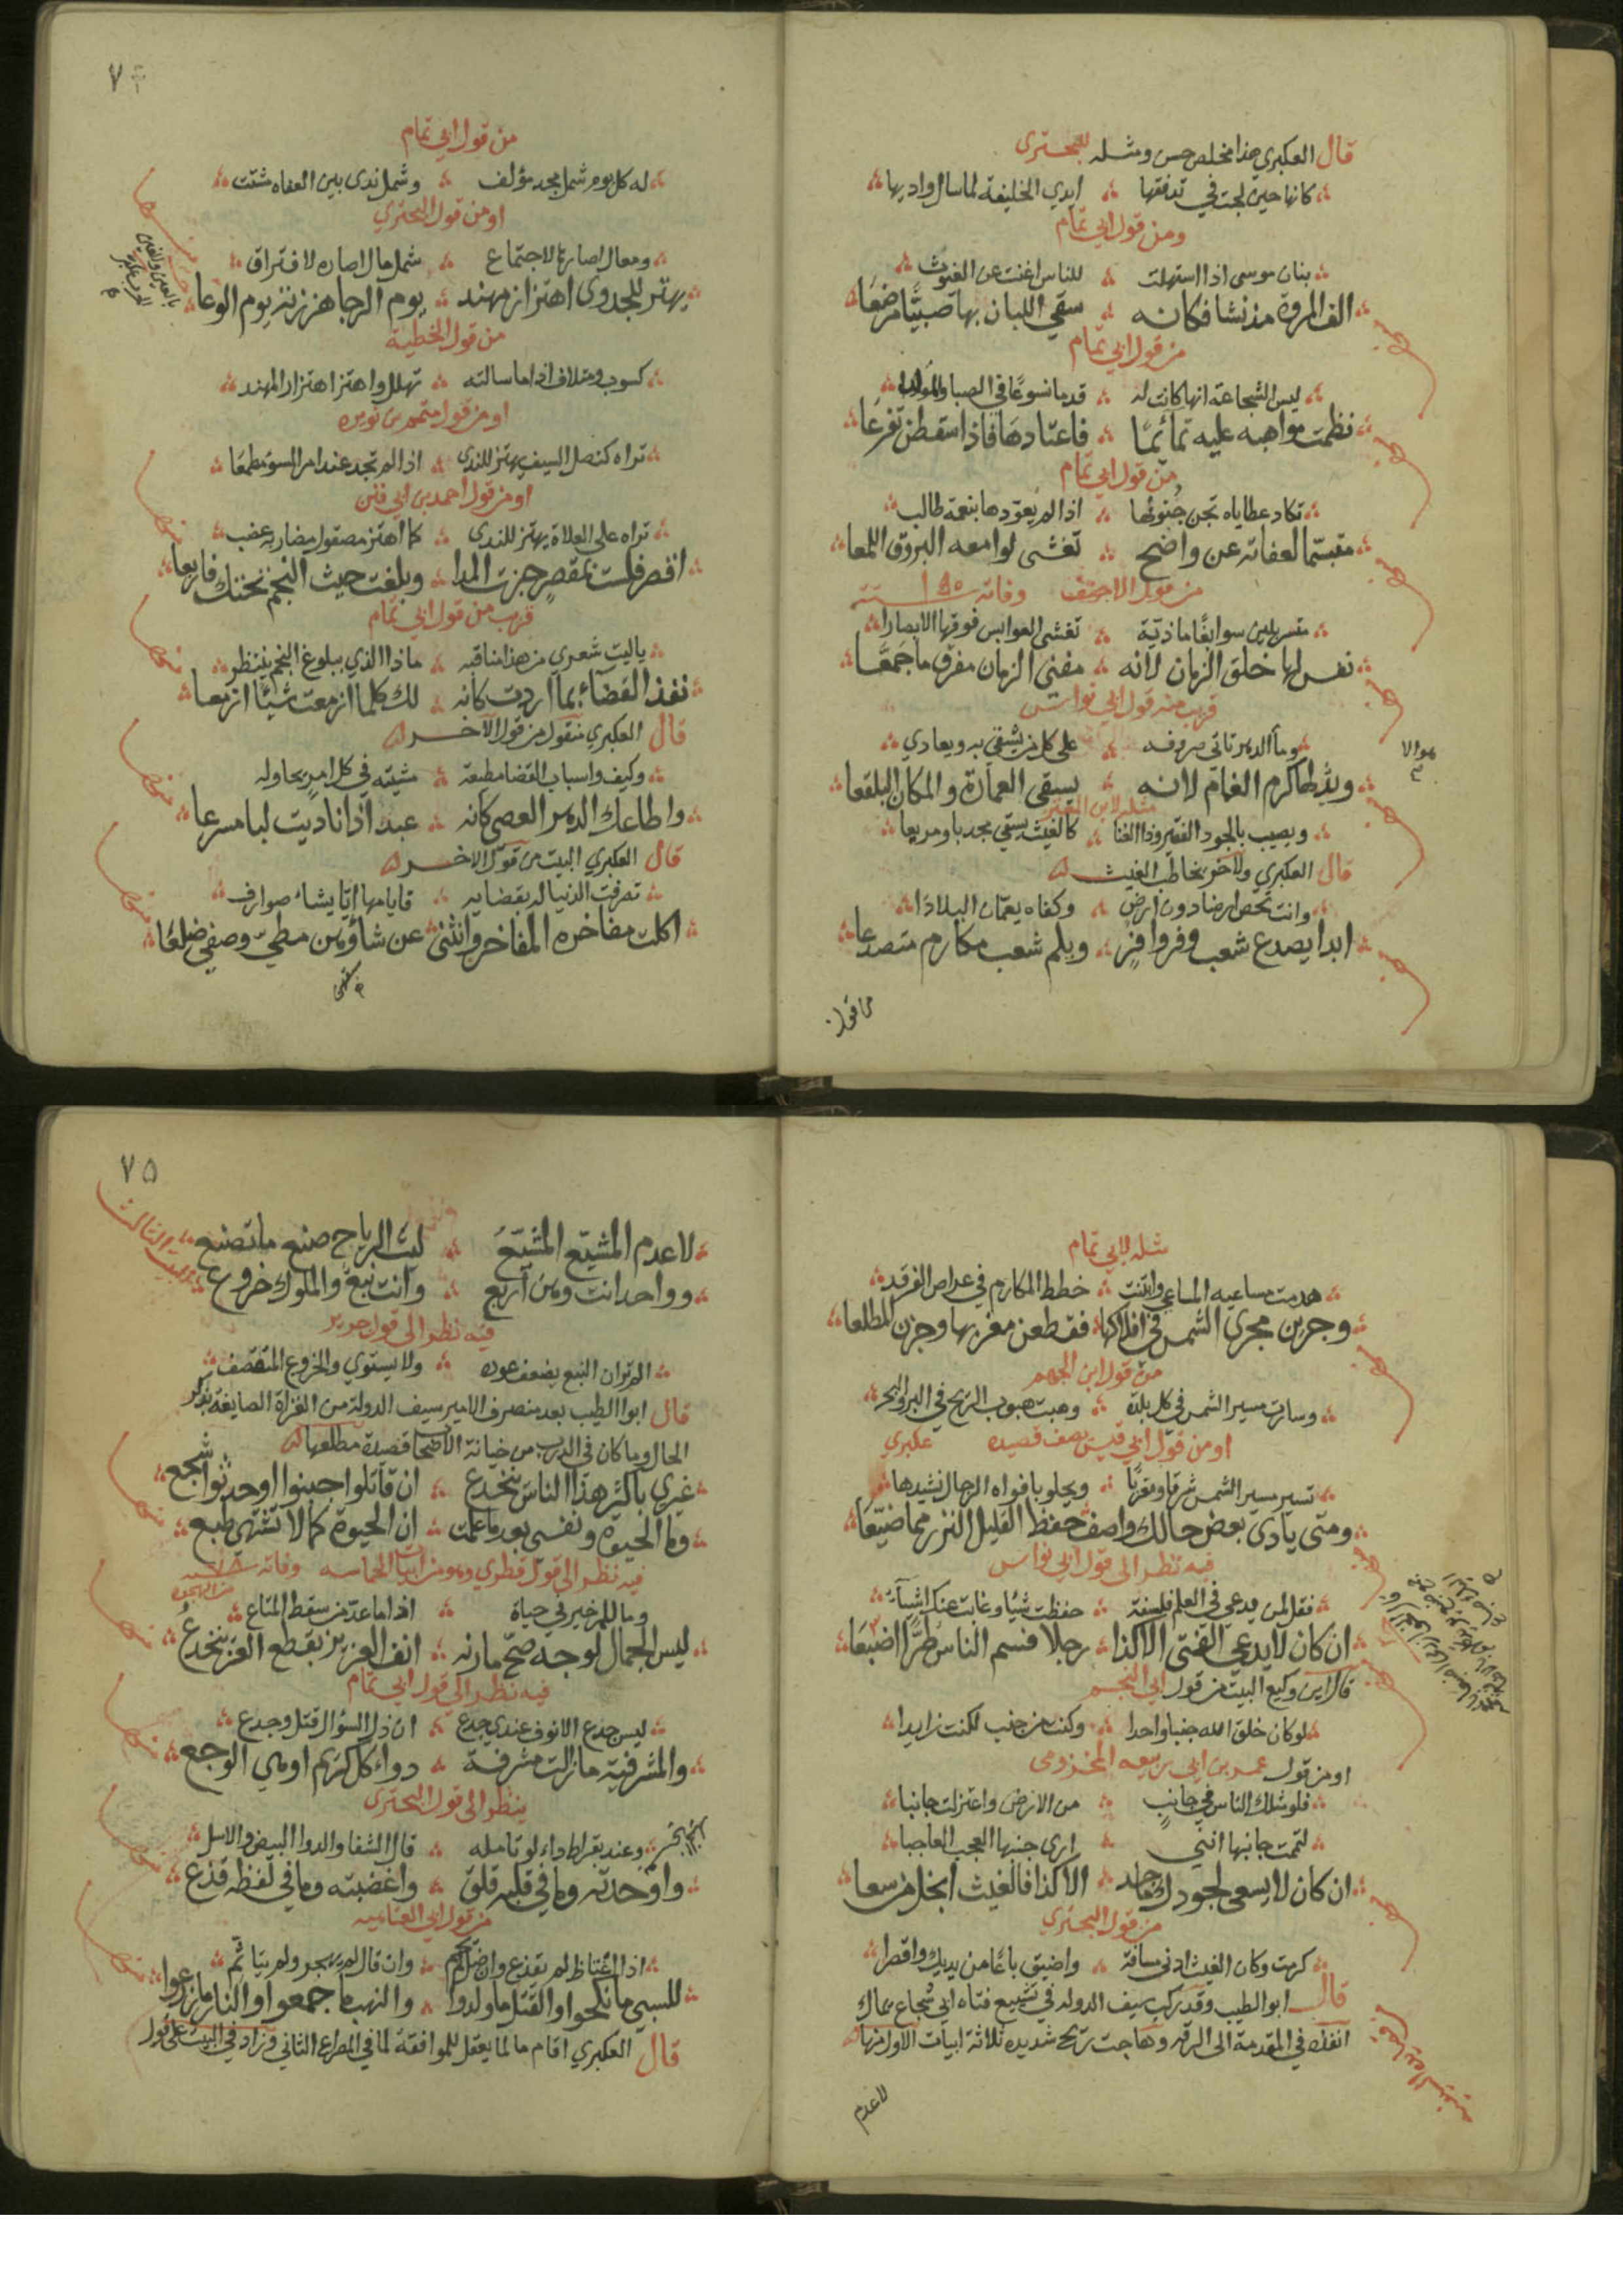 قال العكبري هذا مخلص حسن ومثله للبحتري
كانها حين لجت في تدفقها ايدي الخليفة لما سال واديها
ومن قول ابي تمام
بنان موسى اذا استهلت للناس اغنت عن الغيوث
الف المروة مذ نشا فكانه سقي اللبان بها صبيا مرضعا
من قول ابي تمام
ليس الشجاعة انها كانت له قدما نسوغا في الصبا ولدودا
نظمت مواهبه عليه تمائما فاعتادها فاذا سقطن تفزعا
من قول ابي تمام
تكاد عطاياه تجن جنونها اذا لم يعوذها بنعمة طالب
متبسما لعفاته عن واضح تغشى لوامعه البروق اللمعا
من قول الاحنف وفاته سنة
متسربلين سوابغا ماذية تغشى القوانس فوقها الابصارا
نفس لها خلق الزمان لانه مفني الزمان مفرق ما جمعا
قريب منه قول ابي نواس
وما الدهر تاتي صروفه على كل من يشقى به ويعادي
ويد لها كرم الغمام لانه يسقي العمارة والمكان البلقعا
مثله لابن المعتز
ويصيب بالجود الفقير وذا الغنا كالغيث يسقي مجدبا ومريعا
قال العكبري ولاخر يخاطب الغيث
وانت تخص ارضا دون ارض وكفاه يعمان البلادا
ابدا يصدع شعب وفر وافر ويلم شعب مكارم متصدعا
من قول
٧٤
من قول ابي تمام
له كل يوم شمل مجد مؤلف وشمل ندى بين العفاه مشتت
او من قول البحتري
ومعال اصارها لاجتماع شمل مال اصاره لافتراق
يهتز للجدوى اهتزاز مهند يوم الرجا هززته يوم الوعا
من قول الحطية
كسوب ومتلاف اذا ما سالته تهلل واهتز اهتزاز المهند
او من قول متمم بن نويره
تراه كنصل السيف يهتز للندى اذا لم تجد عند امر السوء مطمعا
او من قول احمد بن ابي فنن
تراه على العلاة يهتز للندى كما اهتز مصقول مضاربه عضب
اقصر فلست بمقصر جزت المدا وبلغت حيث النجم تحتك فاربعا
قريب من قول ابي تمام
يا ليت شعري من هذا مناقبه ماذا الذي ببلوغ النجم ينتظر
نفذ القضاء بما اردت كانه لك كلما ازمعت شيئا ازمعا
قال العكبري منقول من قول الآخر
وكيف واسباب القضا مطيعة مشيته في كل امر يحاوله
واطاعك الدهر العصي كانه عبد اذا ناديت لبا مسرعا
قال العكبري البيت من قول الاخر
تصرفت الدنيا له بقضايه فايامها انا يشاء صوارف
اكلت مفاخره المفاخر وانثنى عن شاؤهن مطي وصفي ضلعا
مثله لابي تمام
هدمت مساعيه المساعي وابتنت خطط المكارم في عراص الفرقد
وجرين مجرى الشمس في افلاكها فقطعن مغربها وجزن المطلعا
من قول ابن الجهم
وسارت مسير الشمس في كل بلدة وهبت هبوب الريح في البر والبحر
او من قول ابي قيس يصف قصيده عكبري
تسير مسير الشمس شرقا ومغربا ويحلو بافواه الرجال نشيدها
ومتى يادي بعض حالك واصف حفظ القليل النزر مما ضيعا
فيه نظر الى قول ابي نواس
فقل لمن يدعي في العلم فلسفة حفظت شيئا وغابت عنك اشياء
ان كان لا يدعى الفتى الا كذا رجلا فسم الناس طرا اضبعا
قال ابن وكيع البيت من قول ابي النجم
لو كان خلق الله جنبا واحدا وكنت من جنب لكنت زايدا
او من قول عمر بن ابي ربيعه المخزومي
فلو شلك الناس في جانب من الارض واعتزلت جانبا
لتممت جانبها انني ارى جنبها العجب العاجبا
ان كان لا يسعى لجود ماجد الا كذا فالغيث ابخل من سعا
من قول البحتري
كرمت وكان الغيث ادنى مسافة واضيق باعا من يديك واقصرا
قال ابو الطيب وقد ركب سيف الدوله في تشييع فتاه ابي شجاع يماك
انفذه في المقدمة الى الرقه وهاجت ريح شديده ثلاثة ابيات الاول منها
لا عدم
٧٥
لا عدم المشيع المشيع ليت الرياح صنع ما تصنع
وواحد انت وهن اربع وانت نبع والملوك خروع
فيه نظر الى قول جرير
الم تر ان النبع يضعف عوده ولا يستوي والخروع المتقصف
قال ابو الطيب بعد منصرف الامير سيف الدولة من الغزاة الصايفة يذكر
الحال وما كان في الدرب من خيانة الاصحاب قصيدة مطلعها
غيري باكثر هذا الناس ينخدع ان قاتلوا جبنوا او حدثوا شجع
وما الحيوة ونفسي بعد ما علمت ان الحيوة كما لا تشتهى طبع
فيه نظر الى قول قطري وهو من ابيات الحماسه وفاته سنة
وما للمرء خير في حياة اذا ما عد من سقط المتاع
ليس الجمال لوجه صح مارنه انف العزيز بقطع العز ينخدع
فيه نظر الى قول ابي تمام
ليس جدع الانوف عندي جدع ان ذل السؤال قتل وجدع
والمشرفية ما زالت مشرفة دواء كل كريم او هي الوجع
ينظر الى قول البحتري
وعند بقراط داء لو تامله قال الشفا والدوا البيض والاسل
واوحدته وما في قلبه قلق واغضبته وما في لفظه قذع
من قول ابي العتاهيه
اذا اغتاظ لم يقذع وان قال لم يهجر ولم يتاثم
للسبي ما نكحوا والقتل ما ولدوا والنهب ما جمعوا والنار ما زرعوا
قال العكبري اقام ما لما يعقل للموافقة لما في المصراع الثاني وزاد في البيت على قول